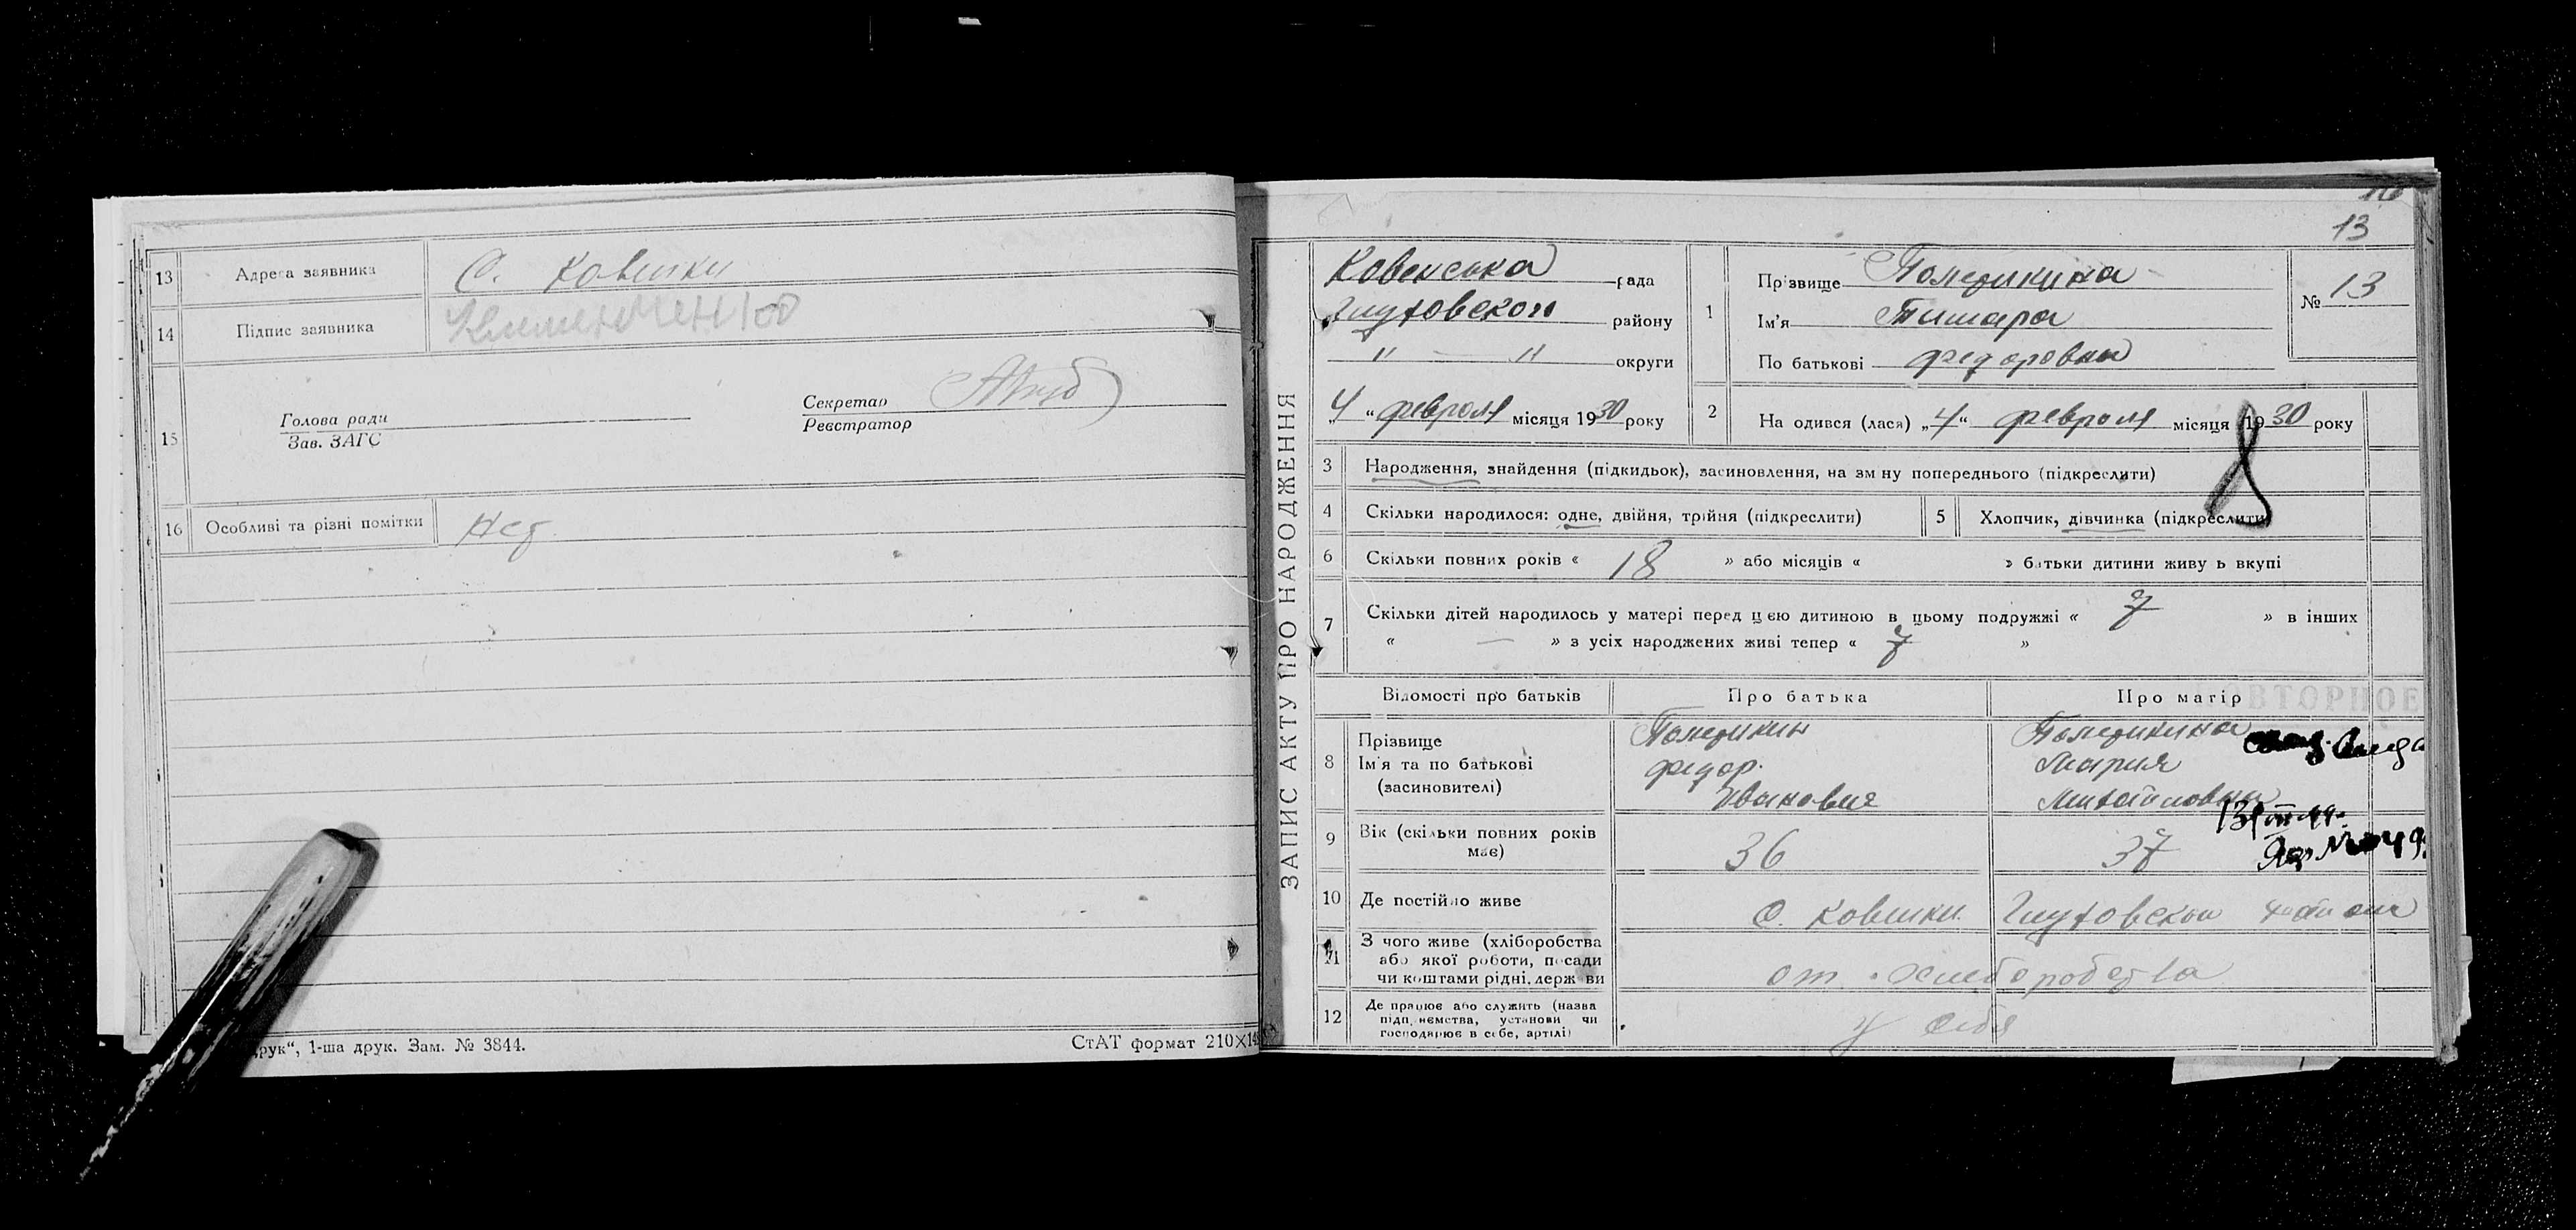 13 Адреса заявника С. Ковинки
14 Підпис заявника
15 Голова ради
Зав. ЗАГС
Секретар
Реєстратор
16 Особливі та різні помітки Нет
друк“, 1-ша друк. Зам. № 3844.
СтАТ формат 210×14
13
ЗАПИС АКТУ ПРО НАРОДЖЕННЯ
Ковенська рада
района району
" — " округи
4 “ февраля місяця 1930 року
1 Прізвище
Ім'я Тамара
По батькові Федоровна
№ 13
2 На одився (лася) „4“ февраля місяця 1930 року
3 Народження, знайдення (підкидьок), засиновлення, на зм ну попереднього (підкреслити)
4 Скільки народилося: одне, двійня, трійня (підкреслити)
5 Хлопчик, дівчинка (підкреслити)
6 Скільки повних років « 18 » або місяців « » батьки дитини живу ь вкупі
7 Скільки дітей народилось у матері перед цею дитиною в цьому подружжі « 7 » в інших
« — » з усіх народжених живі тепер « 7 »
Відомості про батьків
Про батька
Про матір
ВТОРНОЕ
8 Прізвище
Ім'я та по батькові
(засиновителі)
Федор
Иванович
Мария
Михайловна
9 Вік (скільки повних років
має)
36
37
10 Де постійно живе
С. Ковинки
11 З чого живе (хліборобства
або якої роботи, посади
чи коштами рідні, держ ви
от хлеборобства
12 Де працює або служить (назва
підп, ємства, установи чи
господарює в себе, артілі)
у себя